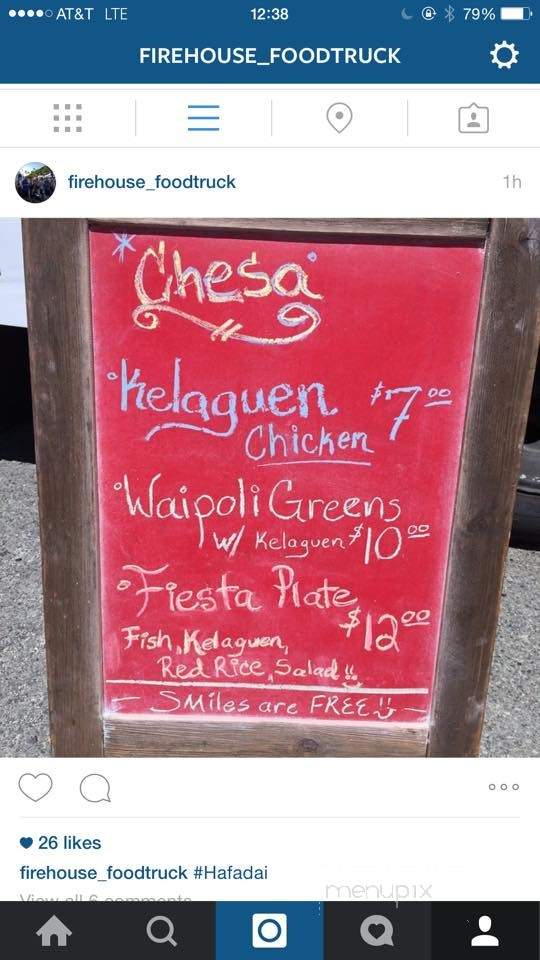 AT&T LTE 12:38 79%
FIREHOUSE_FOODTRUCK
firehouse_foodtruck 1h
Chesa
Kelaguen $7.00
Chicken
Waipoli Greens
w/ Kelaguen $10.00
Fiesta Plate
$12.00
Fish, Kelaguen,
Red Rice, Salad
SMiles are FREE
26 likes
firehouse_foodtruck #Hafadai
menupix
View all 6 comments